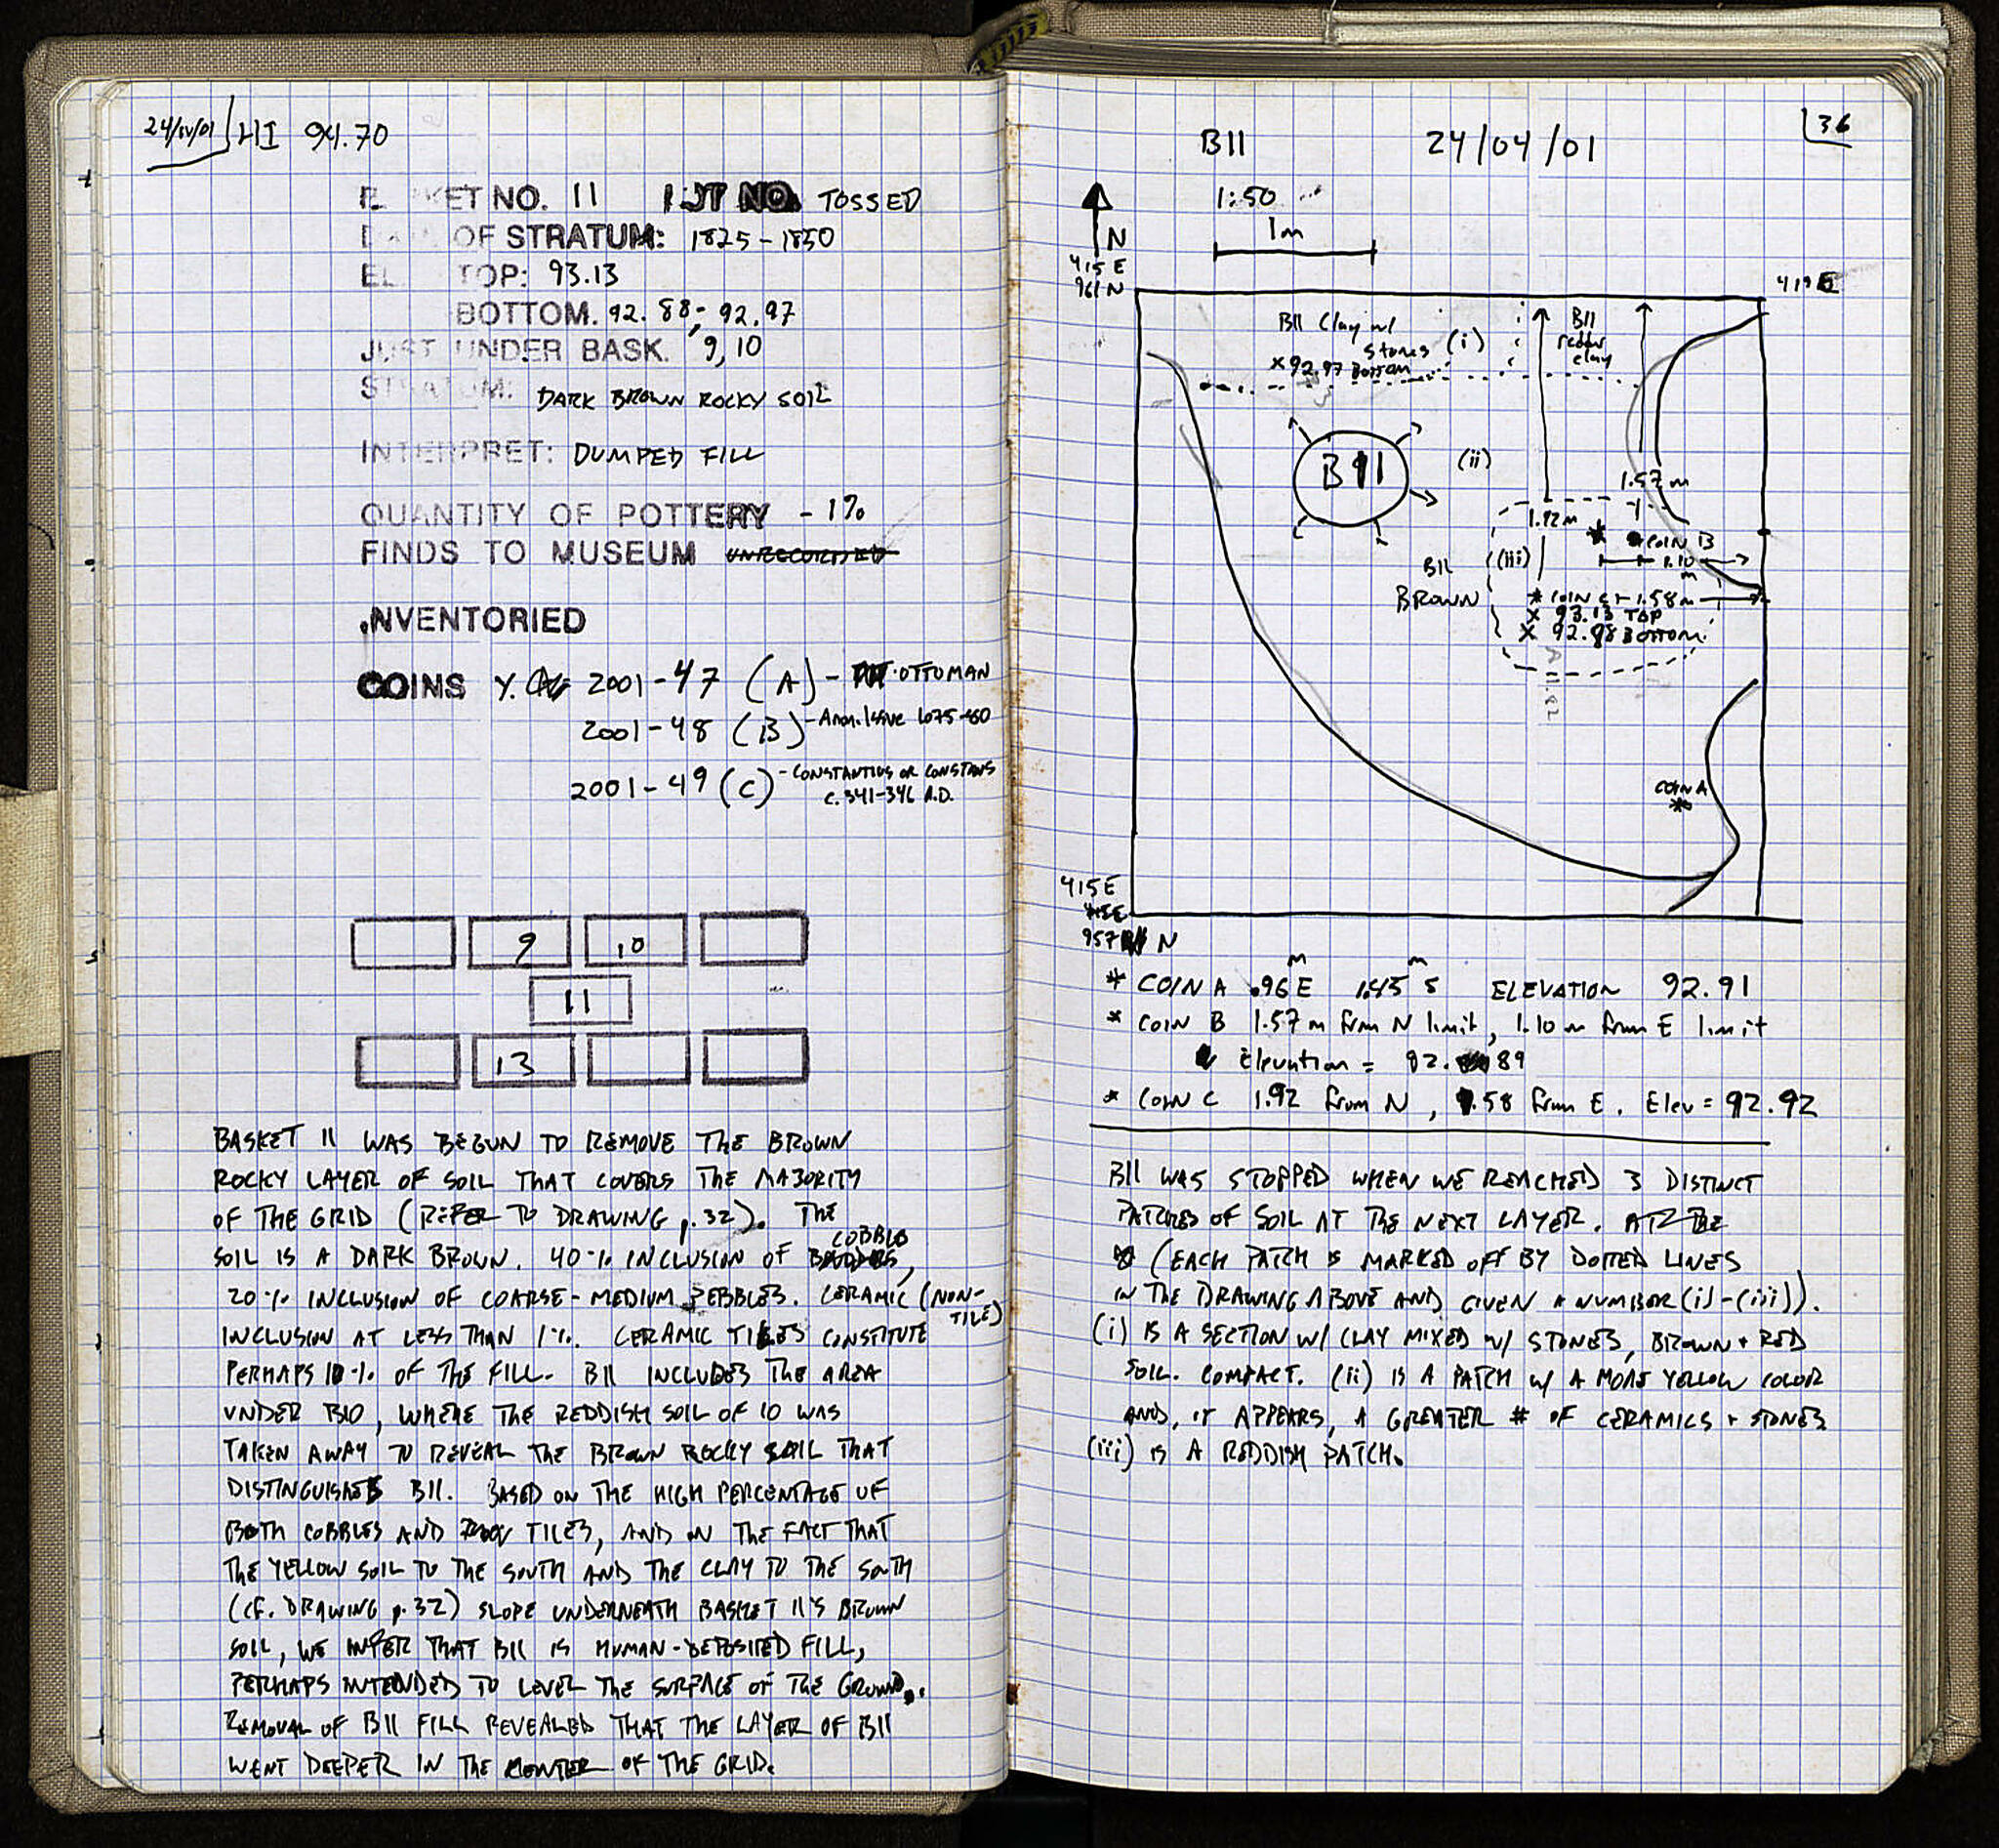 24/IV/01 HI 94.70
KET NO. 11 LOT NO. TOSSED
OF STRATUM: 1825-1850
EL TOP: 93.13
BOTTOM. 92.88; 92.97
JUST UNDER BASK. 9, 10
STRATUM: DARK BROWN ROCKY SOIL
INTERPRET: DUMPED FILL
QUANTITY OF POTTERY - 1%
FINDS TO MUSEUM UNRECORDED
INVENTORIED
COINS Y. 2001-47 (A) - OTTOMAN
2001-48 (B) - Anon. Issue 1075-80
2001-49 (C) - CONSTANTIUS OR CONSTANS
C. 341-346 A.D.
9 10
11
13
BASKET 11 WAS BEGUN TO REMOVE THE BROWN
ROCKY LAYER OF SOIL THAT COVERS THE MAJORITY
OF THE GRID (REFER TO DRAWING p.32). THE
SOIL IS A DARK BROWN. 40% INCLUSION OF COBBLES,
20% INCLUSION OF COARSE-MEDIUM PEBBLES. CERAMIC (NON-TILE)
INCLUSION AT LESS THAN 1%. CERAMIC TILES CONSTITUTE
PERHAPS 10% OF THE FILL. B11 INCLUDES THE AREA
UNDER B10, WHERE THE REDDISH SOIL OF 10 WAS
TAKEN AWAY TO REVEAL THE BROWN ROCKY SOIL THAT
DISTINGUISHES B11. BASED ON THE HIGH PERCENTAGE OF
BOTH COBBLES AND TILES, AND ON THE FACT THAT
THE YELLOW SOIL TO THE SOUTH AND THE CLAY TO THE SOUTH
(CF. DRAWING p.32) SLOPE UNDERNEATH BASKET 11'S BROWN
SOIL, WE INFER THAT B11 IS HUMAN-DEPOSITED FILL,
PERHAPS INTENDED TO LEVEL THE SURFACE OF THE GROUND.
REMOVAL OF B11 FILL REVEALED THAT THE LAYER OF B11
WENT DEEPER IN THE CENTER OF THE GRID.
B11 24/04/01 36
1:50
1m
N
415 E
961 N
419 E
B11 Clay w/
stones (i)
x 92.97 Bottom
B11
redder
clay
B11
(ii)
1.57 m
1.92 m
COIN B
(iii)
1.10
m
B11
BROWN
* COIN C 1.58 m
x 93.13 TOP
x 92.88 BOTTOM
COIN A
*
415 E
957 N
* COIN A .96 m E 1.45 m S ELEVATION 92.91
* COIN B 1.57 m from N limit, 1.10 m from E limit
Elevation = 92.89
* COIN C 1.92 from N, 1.58 from E. Elev = 92.92
B11 WAS STOPPED WHEN WE REACHED 3 DISTINCT
PATCHES OF SOIL AT THE NEXT LAYER.
(EACH PATCH IS MARKED OFF BY DOTTED LINES
IN THE DRAWING ABOVE AND GIVEN A NUMBER (i)-(iii)).
(i) IS A SECTION W/ CLAY MIXED W/ STONES, BROWN + RED
SOIL. COMPACT. (ii) IS A PATCH W/ A MORE YELLOW COLOR
AND, IT APPEARS, A GREATER # OF CERAMICS + STONES
(iii) IS A REDDISH PATCH.